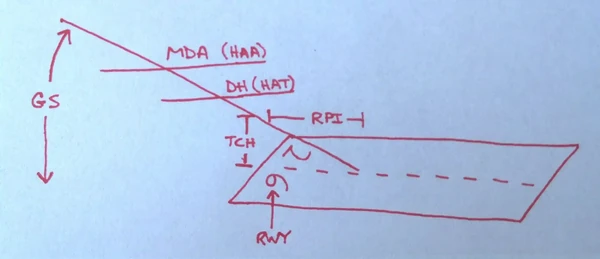 MDA (HAA)
DH (HAT)
GS
RPI
TCH
RWY